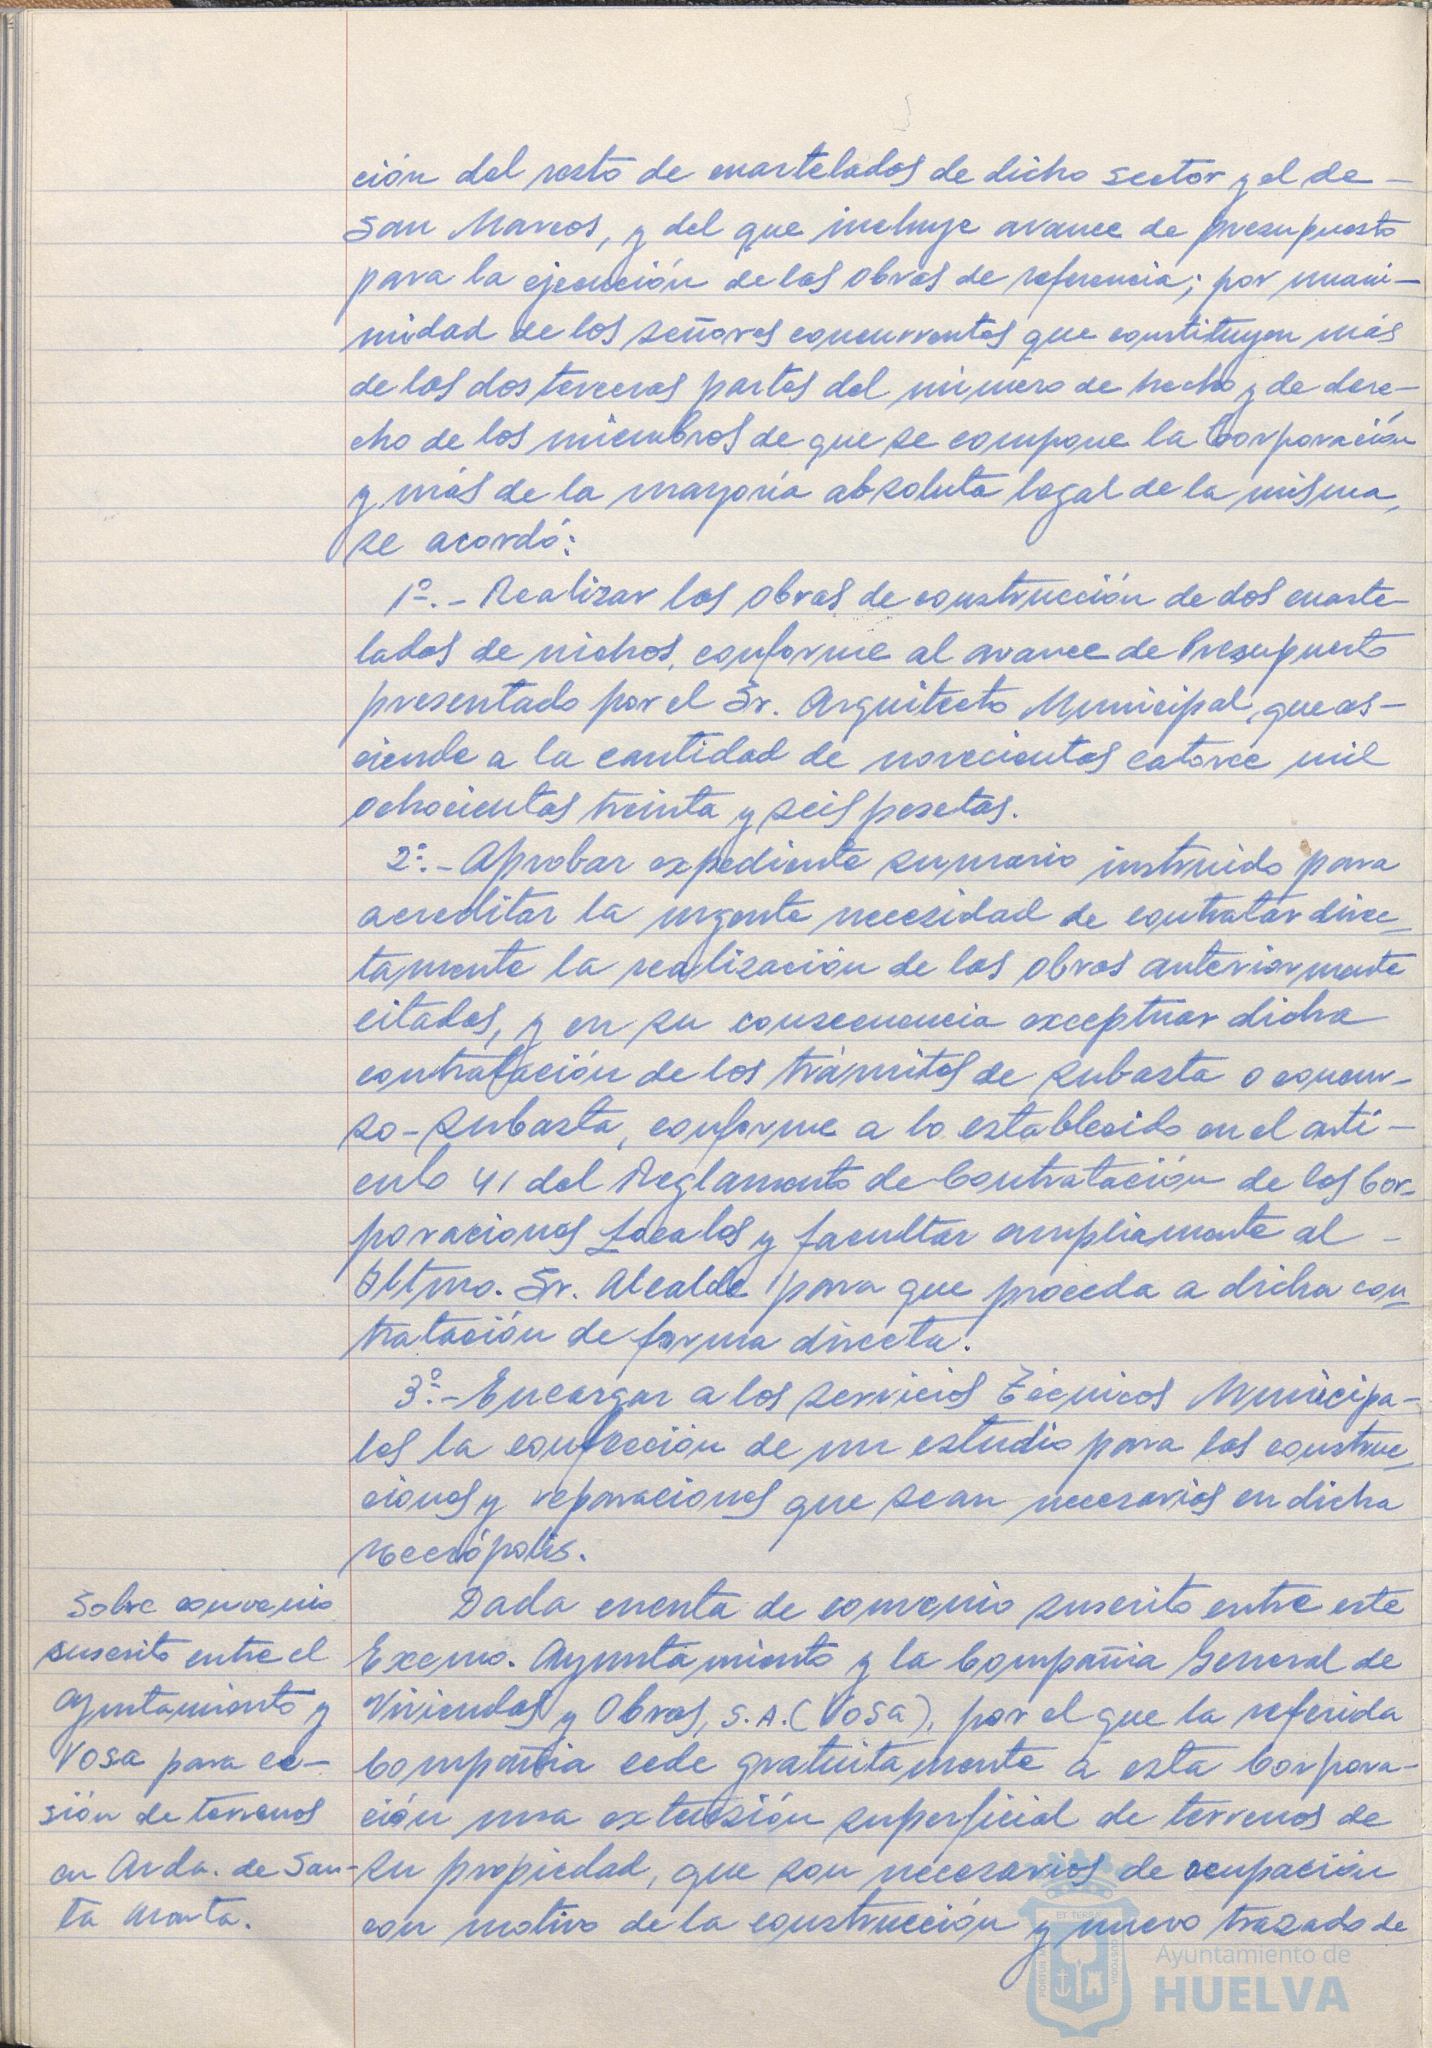 ción del resto de cuartelados de dicho sector y el de -
San Marcos, y del que incluye avance de presupuesto
para la ejecución de las obras de referencia; por unani-
midad de los señores concurrentes que constituyen más
de las dos terceras partes del número de hecho y de dere-
cho de los miembros de que se compone la Corporación
y más de la mayoría absoluta legal de la misma,
se acordó:
1º.- Realizar las obras de construcción de dos cuarte-
lados de nichos, conforme al avance de Presupuesto
presentado por el Sr. Arquitecto Municipal, que as-
ciende a la cantidad de novecientas catorce mil
ochocientas treinta y seis pesetas.
2º.- Aprobar expediente sumario instruido para
acreditar la urgente necesidad de contratar direc-
tamente la realización de las obras anteriormente
citadas, y en su consecuencia exceptuar dicha
contratación de los trámites de subasta o concur-
so-subasta, conforme a lo establecido en el artí-
culo 41 del Reglamento de Contratación de las Cor-
poraciones Locales y facultar ampliamente al -
Iltmo. Sr. Alcalde para que proceda a dicha con-
tratación de forma directa.
3º.- Encargar a los servicios Técnicos Municipa-
les la confección de un estudio para las construc-
ciones y reparaciones que sean necesarias en dicha
necrópolis.
Sobre convenio
suscrito entre el
Ayuntamiento y
VOSA para ce-
sión de terrenos
en Avda. de San-
ta Marta.
Dada cuenta de convenio suscrito entre este
Excmo. Ayuntamiento y la Compañía General de
Viviendas y Obras, S.A. (VOSA), por el que la referida
Compañía cede gratuitamente a esta Corpora-
ción una extensión superficial de terrenos de
su propiedad, que son necesarios de ocupación
con motivo de la construcción y nuevo trazado de
Ayuntamiento de
HUELVA